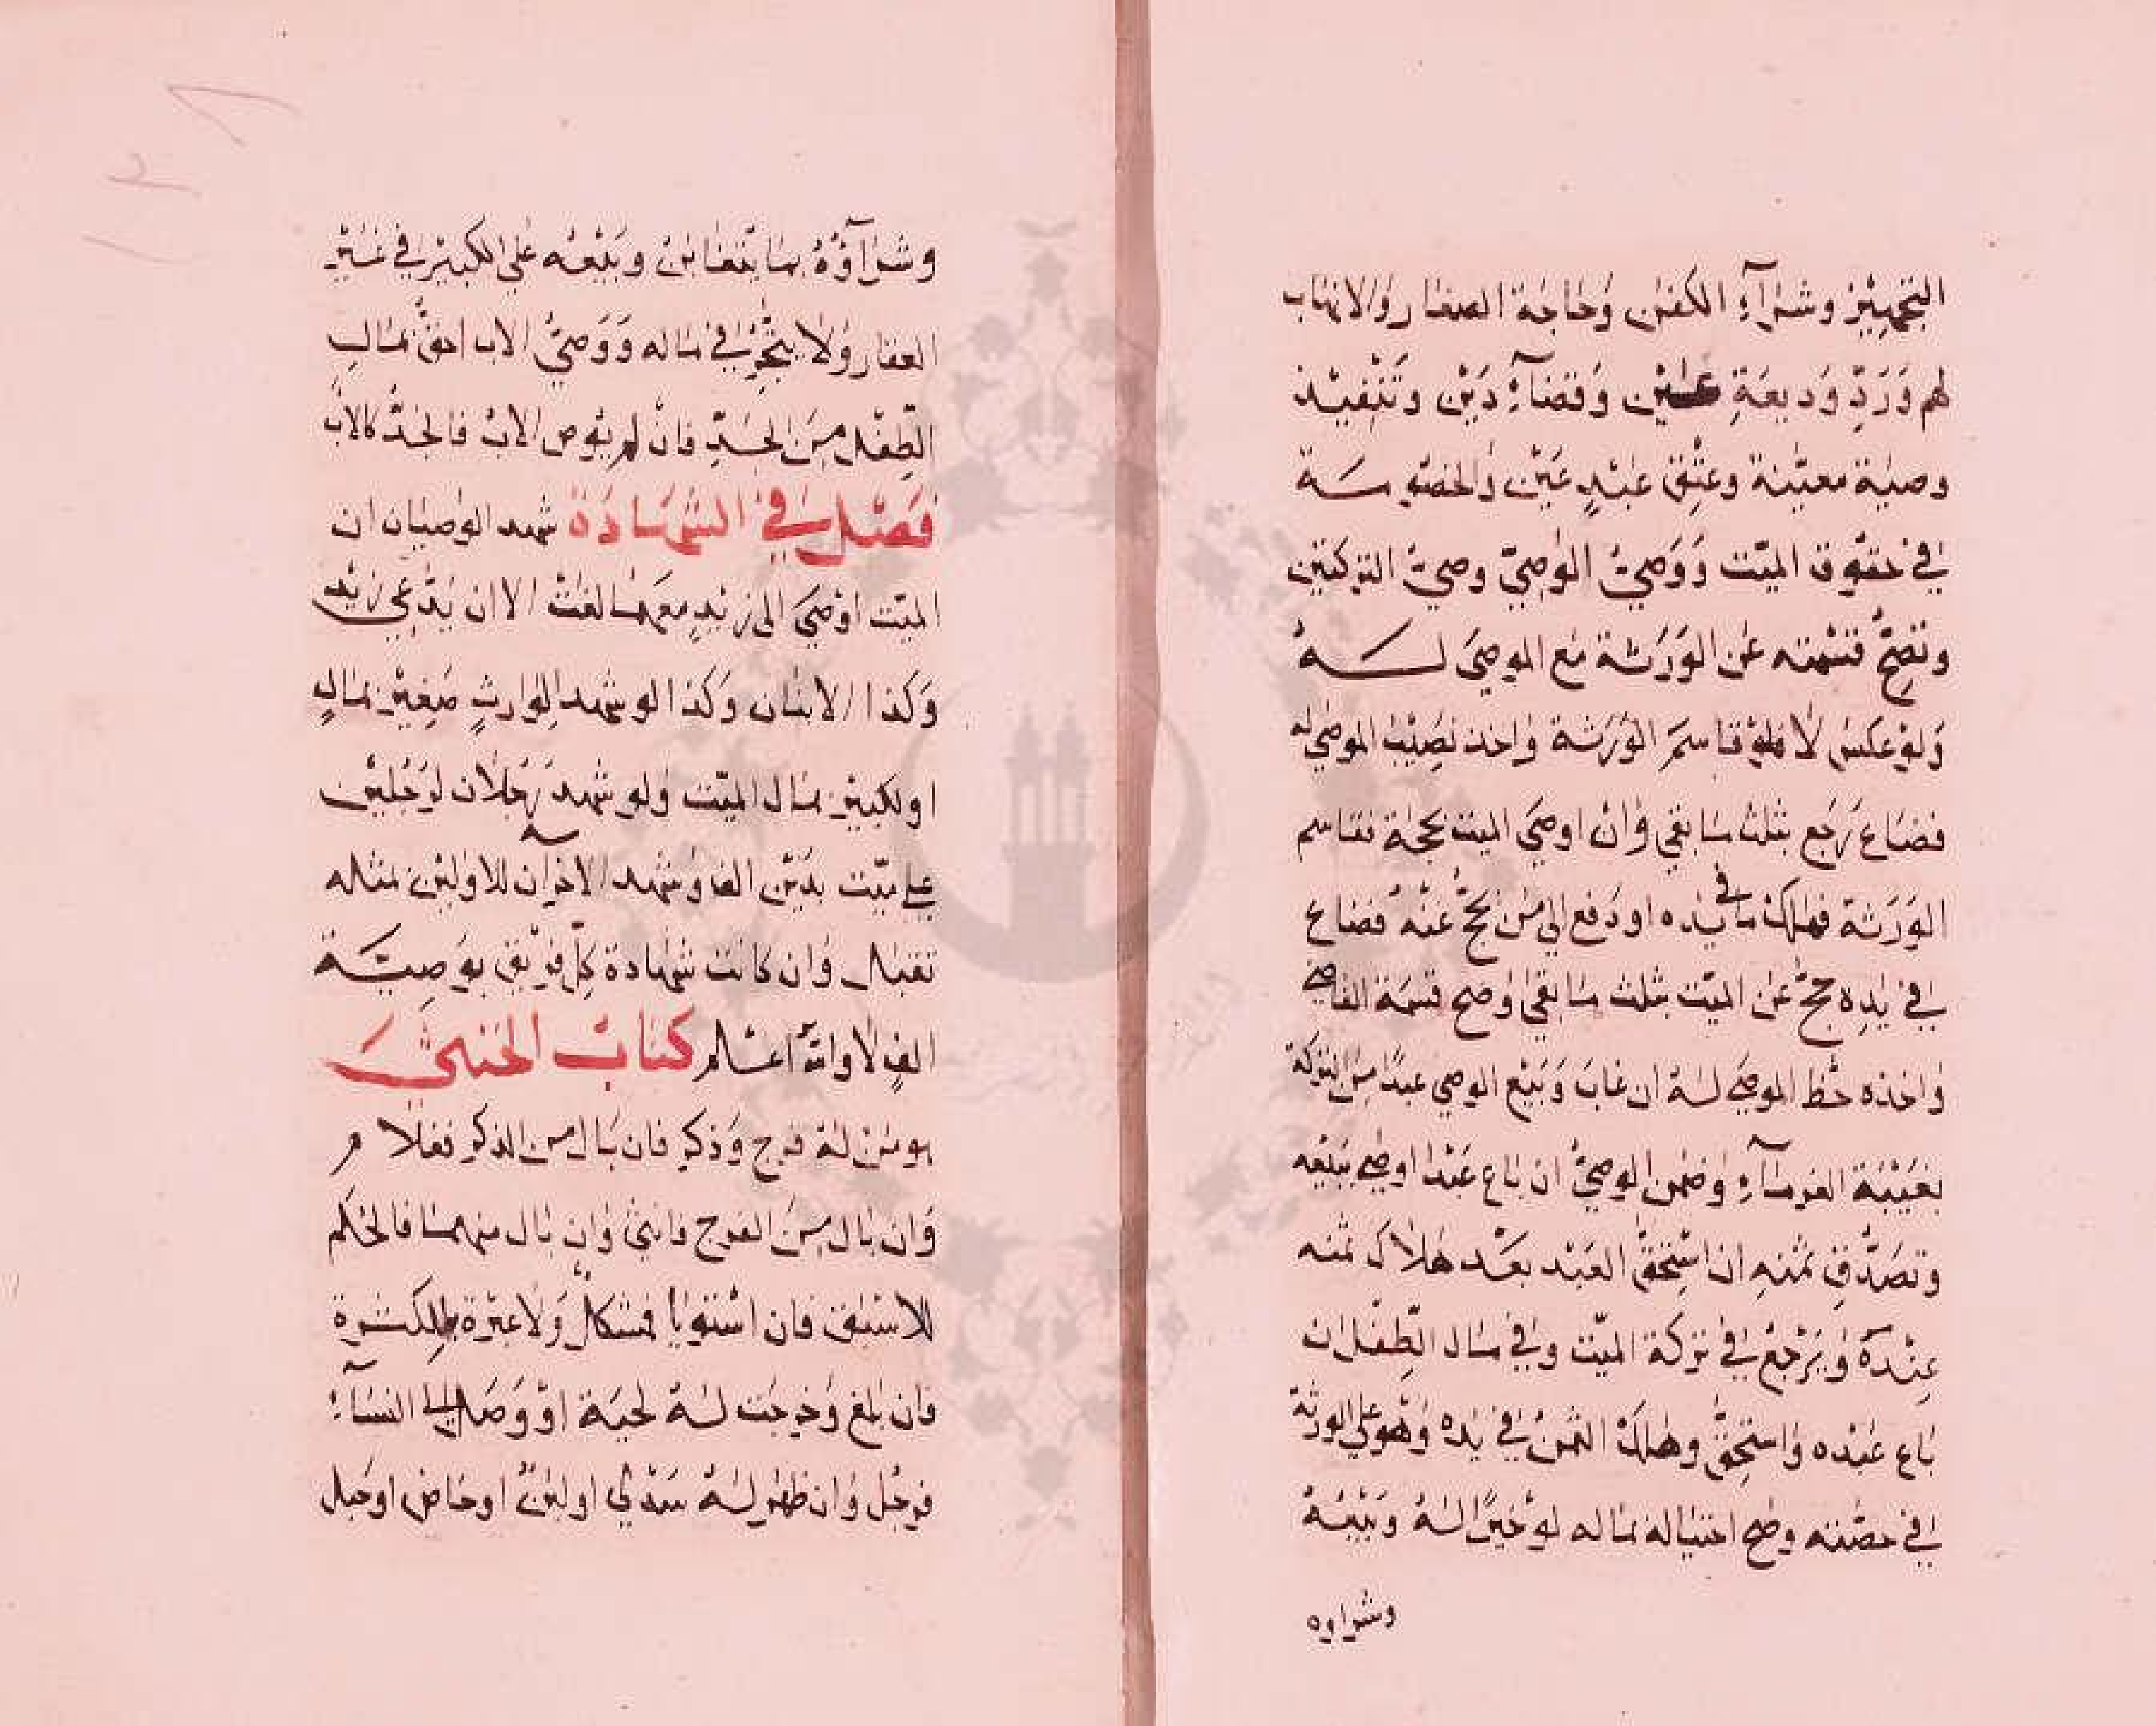 التجهيز وشرآء الكفن وحاجة الصغار والاتهاب
لهم وَرَدّ وَديعَةِ عين وَقضآءِ دَيْن وتَنْفيذ
وصية معيّنة وعتْق عبْدٍ عَيْن والخصُومَة
في حقوق الميّت وَوَصيُّ الوصيّ وصيُّ التركتين
وتصِحُّ قسْمته عن الوَرَثة مع الموصَى لــــه
وَلوْ عكسَ لا فلوْ قاسَمَ الوَرَثة واخذ نصِيْبَ الموصَى له
فضاع رَجَع بثلث ما بقي وَانْ اوصَى الميت بحجة فقاسم
الوَرَثة فهلك ما في يده او دَفع الى مَن يحجّ عَنْهُ فضاع
في يَدِه حجّ عن الميّت بثلث ما بقي وصح قسْمَة القاضي
واخذه حَظ الموصى لهُ ان غابَ وَبَيْع الوصي عبدًا من التركة
بغيْبَة الغرمآءِ وضمن الوصيُّ ان باع عَبْدا اوصي ببَيْعه
وتصَدُّقِ ثمنهِ ان اسْتحقّ العَبْد بعْد هلاك ثمنه
عِنْدَهُ ويَرْجعُ في تركة الميّت وفي مال الطِّفْل ان
باع عبْده واستحِقّ وهلك الثمنُ في يده وهُو على الورثة
في حصّته وصح احتياله بماله لوْ خيرًا لهُ وبَيْعُهُ
وشراوه
وشرَآؤُهُ بما يتغابنُ وبَيْعُه على الكبيْر في غَيْر
العقار ولا يتّجرُ في ماله وَوَصيُّ الاب احقُّ بمال
الطِّفْل مِنَ الجَدِّ فانْ لم يوص الابُ فالجَدُّ كالابُ
فصْل في الشهَادَة شهد الوصيان ان
الميّت اوْصَى الى زيدٍ معهما لغتْ الا ان يَدّعي زيْد
وَكذا الابنان وَكذا لو شهد الِوارثٍ صَغِيْر بمالٍ
او لكبيْر بمال الميّت ولو شهد رَجلان لرَجلين
على ميّت بدَيْن الف وشهد الآخران للاولين بمثله
تقبل وَان كانت شهادة كلّ فريق بوَصِيَّــة
الفٍ لا والله اعلم كتابُ الخنثى
هو مَن لهُ فرج وَذكر فان بَال من الذكر فغلام
وَان بال مِنَ الفرج فانثى وَان بَال منهما فالحكم
للاسْبَق فان اسْتويا فمشكلٌ وَلا عبْرة بالكثرة
فان بلغ وَخرجت لهُ لحية اوْ وَصَل الى النسَآءِ
فرجُل وان ظهر لهُ ثدْيٌ او لبنٌ او حاض اوحبل